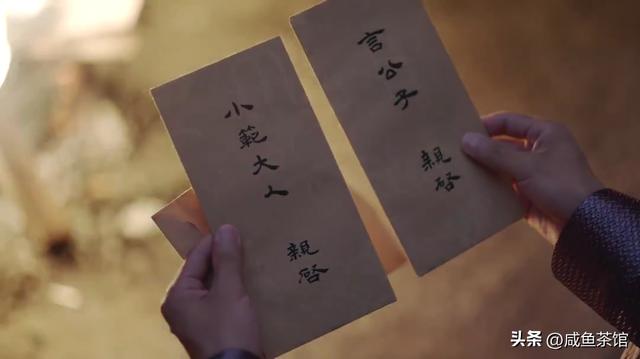 小範大人
親啓
言公子
親啓
头条 @咸鱼茶馆